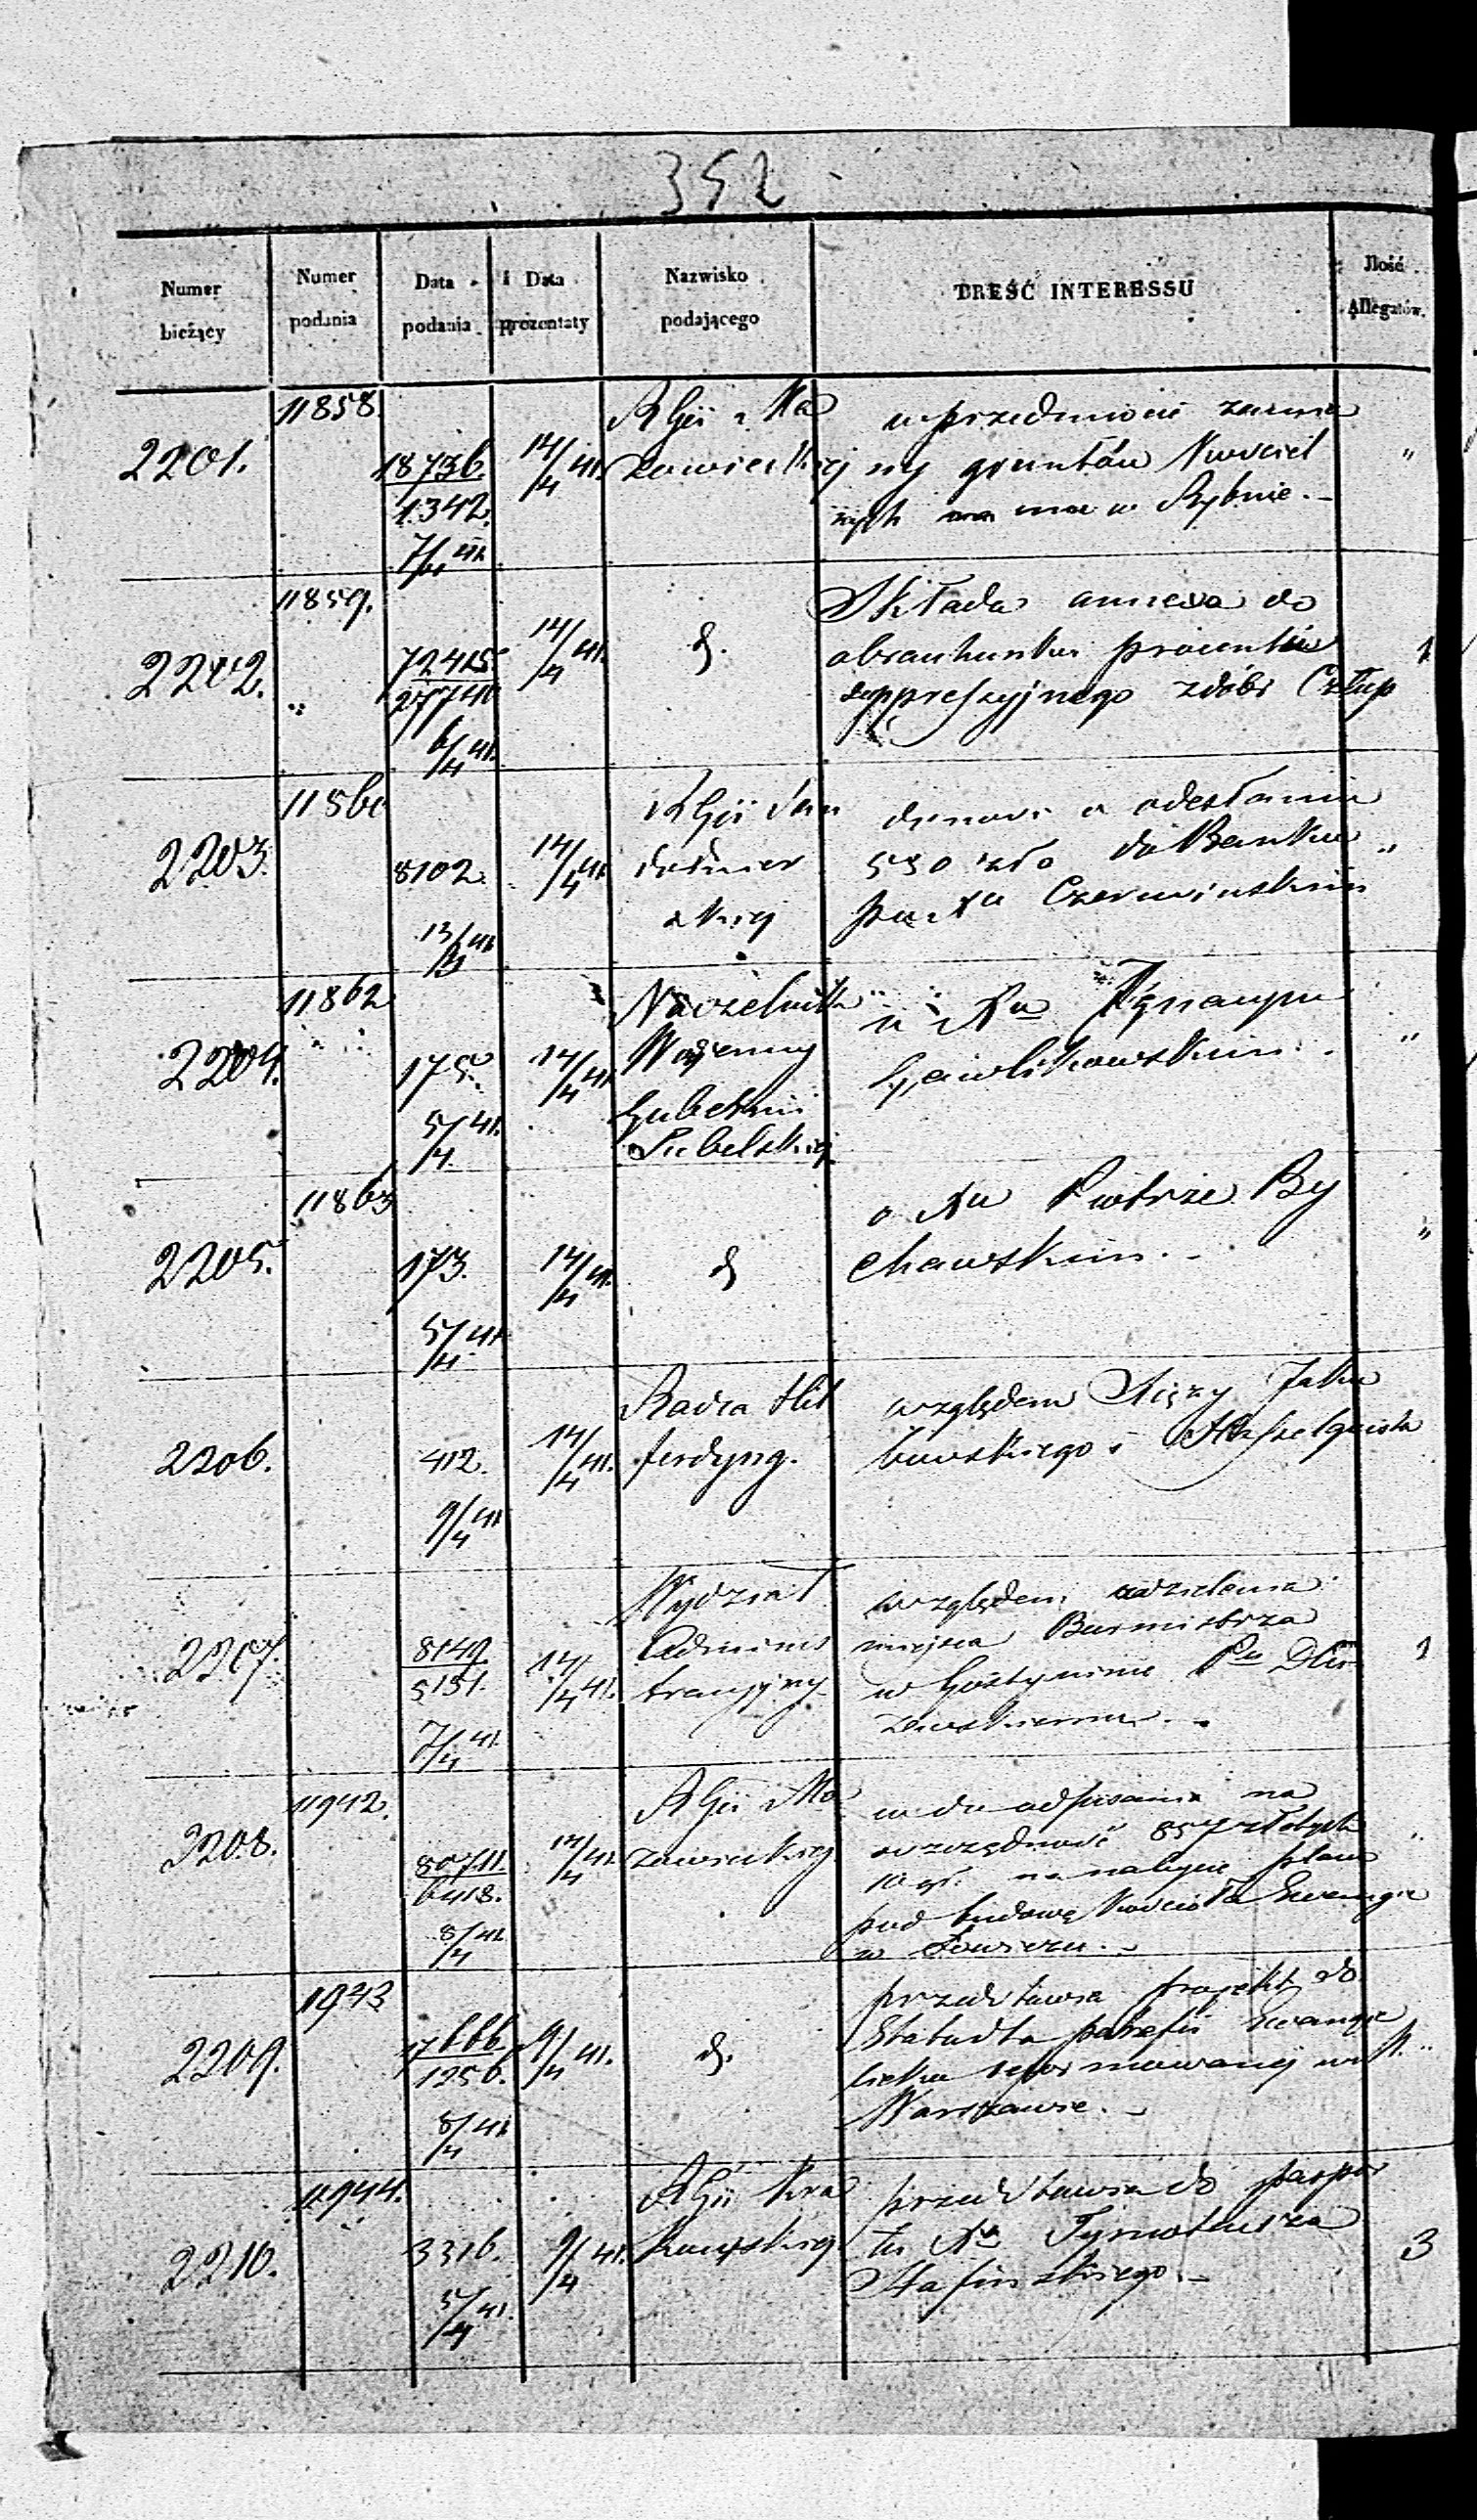 352
Numer bieżący
Numer podania
Data podania
Data prezentaty
Nazwisko podającego
TREŚĆ INTERESSU
Ilość Allegatów.
2201.
11858.
18736.
1342.
7/4 41
14/4 41.
RGii Ma
zowieckiej
w przedmiocie zamia
ny gruntów Kościel
nych
w Rybnie.
"
2202.
11859.
"
72415.
27740
6/4 41.
14/4 41.
d.
Składa annexa do
obrachunku procentu
suppressyjnego z dóbr Człup
1
2203.
1186
8102.
13/3 41
14/4 41
RGii San
domier
skiej
donosi o odesłaniu
530 złp do Banku
po Xu Czerwińskim
"
2204.
11862
175.
5/4 41.
14/4 41
Naczelnik
Wojenny
Gubernii
Lubelskiej
o Xu Ignacym
Gawlikowskim.
"
2205.
11863
173.
5/4 41
14/4 41.
d
o Xu Piotrze By
chawskim.
"
2206.
412.
9/4 41
14/4 41.
Radca Hil
ferdyng.
względem Xięży Jaku
bowskiego i
2207.
8149
5151.
7/4 41.
14/4 41.
Wydział
Adminis
tracyjny
względem udzielenia
miejsca Burmistrza
w Gostyninie Pu
zewskiemu.
1
2208.
11942.
80711.
6418.
8/4 41
14/4 41
RGii Ma
zowieckiej
wzdu odpisania na
oszczędność 857 złotych
10 gr. na nabycie placu
pod budowę Kościoła Ewangie
w Łowiczu.
"
2209.
11943
17666.
1256.
8/4 41
9/4 41.
d.
przedstawia projekt do
Etatu dla parafii Ewangie
licko reformowanej w
Warszawie.
"
2210.
11944.
3316.
5/4 41.
9/4 41.
RGii Kra
kowskiej
przedstawia do paszpor
tu Xa Tymoteusza
Stasińskiego.
3